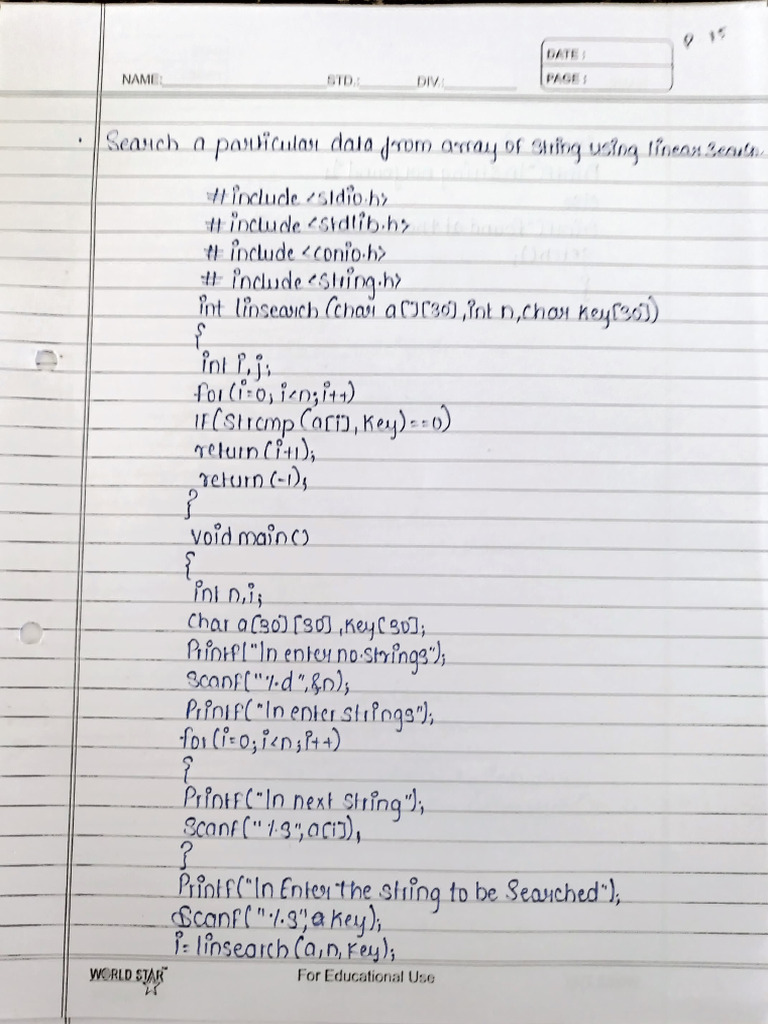 9 15
DATE :
NAME: STD.: DIV.:
PAGE :
. Search a particular data from array of string using linear Search.
# include <stdio.h>
# include <stdlib.h>
# include <conio.h>
# include <string.h>
int linsearch (char a[][30], int n, char key[30])
{
int i, j;
for (i=0; i<n; i++)
If (Strcmp (a[i], key) ==0)
return (i+1);
return (-1);
}
void main()
{
int n, i;
Char a[30][30], key[30];
Printf("\n enter no. strings");
Scanf("%d", &n);
Printf("\n enter strings");
for (i=0; i<n; i++)
{
Printf("\n next string");
Scanf("%s", a[i]),
}
Printf("\n Enter the string to be Searched");
Scanf("%s", a key);
i= linsearch (a, n, key);
WORLD STAR For Educational Use